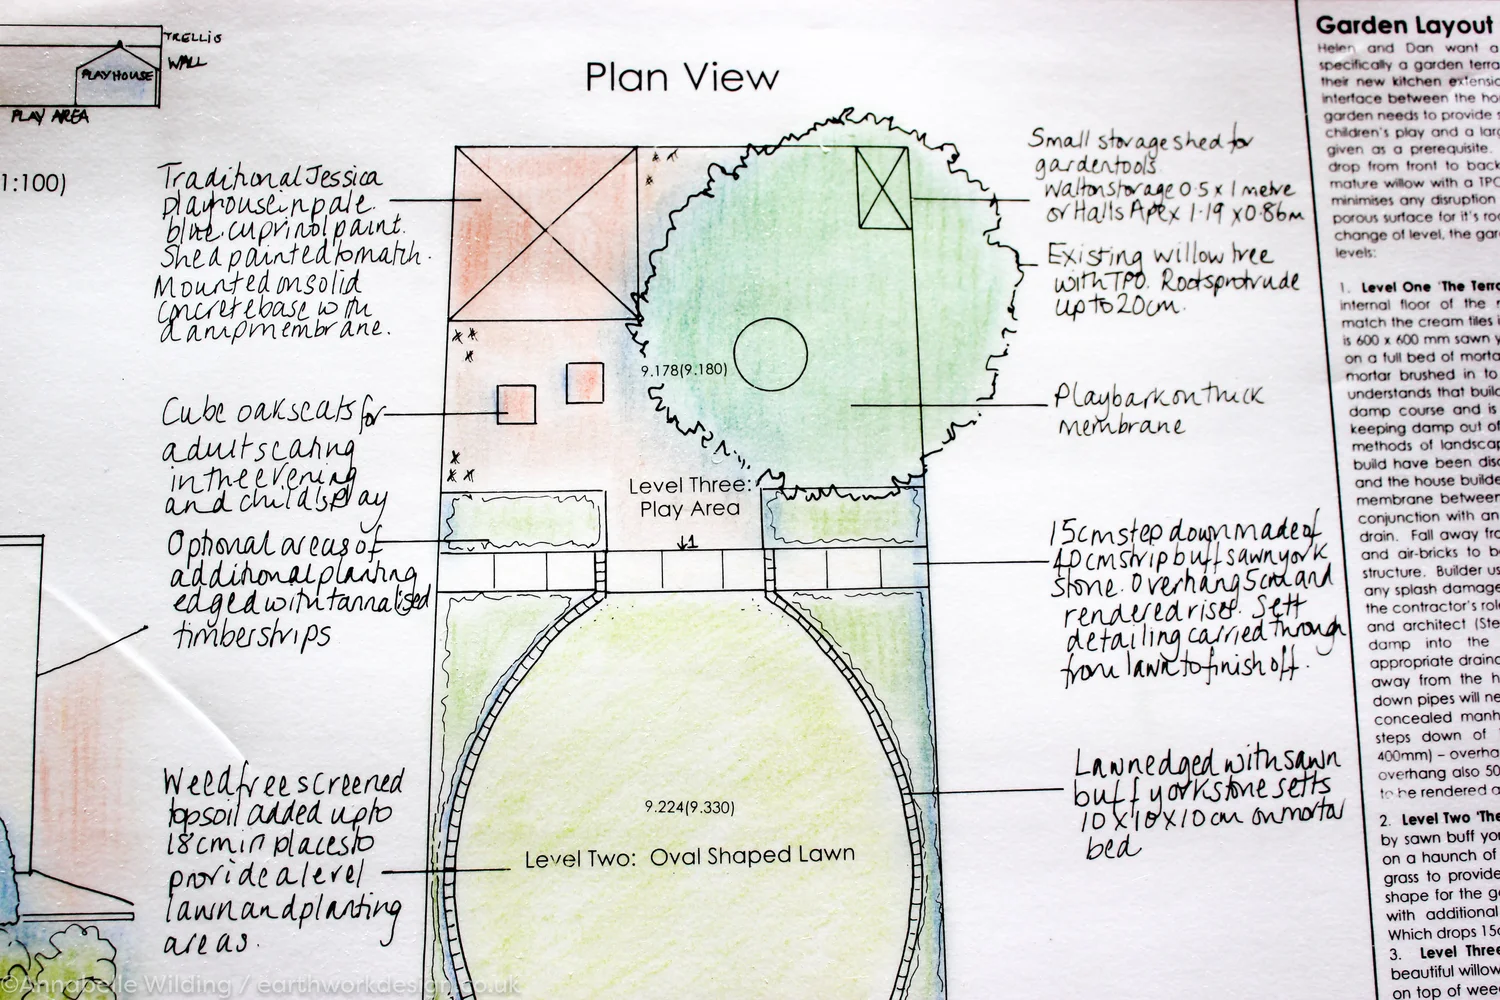 TRELLIS
WALL
PLAYHOUSE
PLAY AREA
1:100)
Plan View
Traditional Jessica
playhouse in pale
blue cuprinol paint.
Shed painted to match.
Mounted on solid
concrete base with
damp membrane.
Cube oak seats for
adult seating
in the evening
and child's play
Optional areas of
additional planting
edged with tannalised
timber strips
Weed free screened
topsoil added up to
18cm in places to
provide a level
lawn and planting
areas.
9.178(9.180)
Level Three:
Play Area
1
9.224(9.330)
Level Two: Oval Shaped Lawn
Small storage shed for
garden tools
Walton storage 0.5 x 1 metre
or Halls Apex 1.19 x 0.86m
Existing willow tree
with TPO. Roots protrude
up to 20cm.
Play bark on thick
membrane
15cm step down made of
40cm strip buff sawn york
stone. Overhang 5cm and
rendered riser. Sett
detailing carried through
from lawn to finish off.
Lawn edged with sawn
buff yorkstone setts
10 x 10 x 10 cm on mortar
bed
Garden Layout
Helen and Dan want a
specifically a garden terra
their new kitchen extensio
interface between the ho
garden needs to provide s
children's play and a larg
given as a prerequisite.
drop from front to back
mature willow with a TPO
minimises any disruption
porous surface for it's roo
change of level, the gar
levels:
1. Level One 'The Terra
internal floor of the
match the cream tiles i
is 600 x 600 mm sawn y
on a full bed of morta
mortar brushed in to
understands that build
damp course and is
keeping damp out of
methods of landscap
build have been disc
and the house builde
membrane between
conjunction with an
drain. Fall away fro
and air-bricks to b
structure. Builder us
any splash damage
the contractor's role
and architect (Ste
damp into the
appropriate draina
away from the h
down pipes will ne
concealed manh
steps down of
400mm) – overha
overhang also 50
to be rendered a
2. Level Two 'The
by sawn buff yo
on a haunch of
grass to provide
shape for the g
with additional
Which drops 15c
3. Level Three
beautiful willow
on top of weed
©Annabelle Wilding / earthworkdesign.co.uk